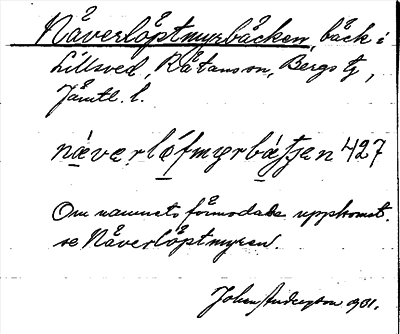 Nåverlöptmyrbäcken, bäck i
Lillsved, Rätansson, Bergs tg,
Jämtl. l.
nàverlö́fmyrbä́tjen 427
Om namnets förmodade uppkomst.
se Nåverlöptmyren.
Johan Anderson 1931.